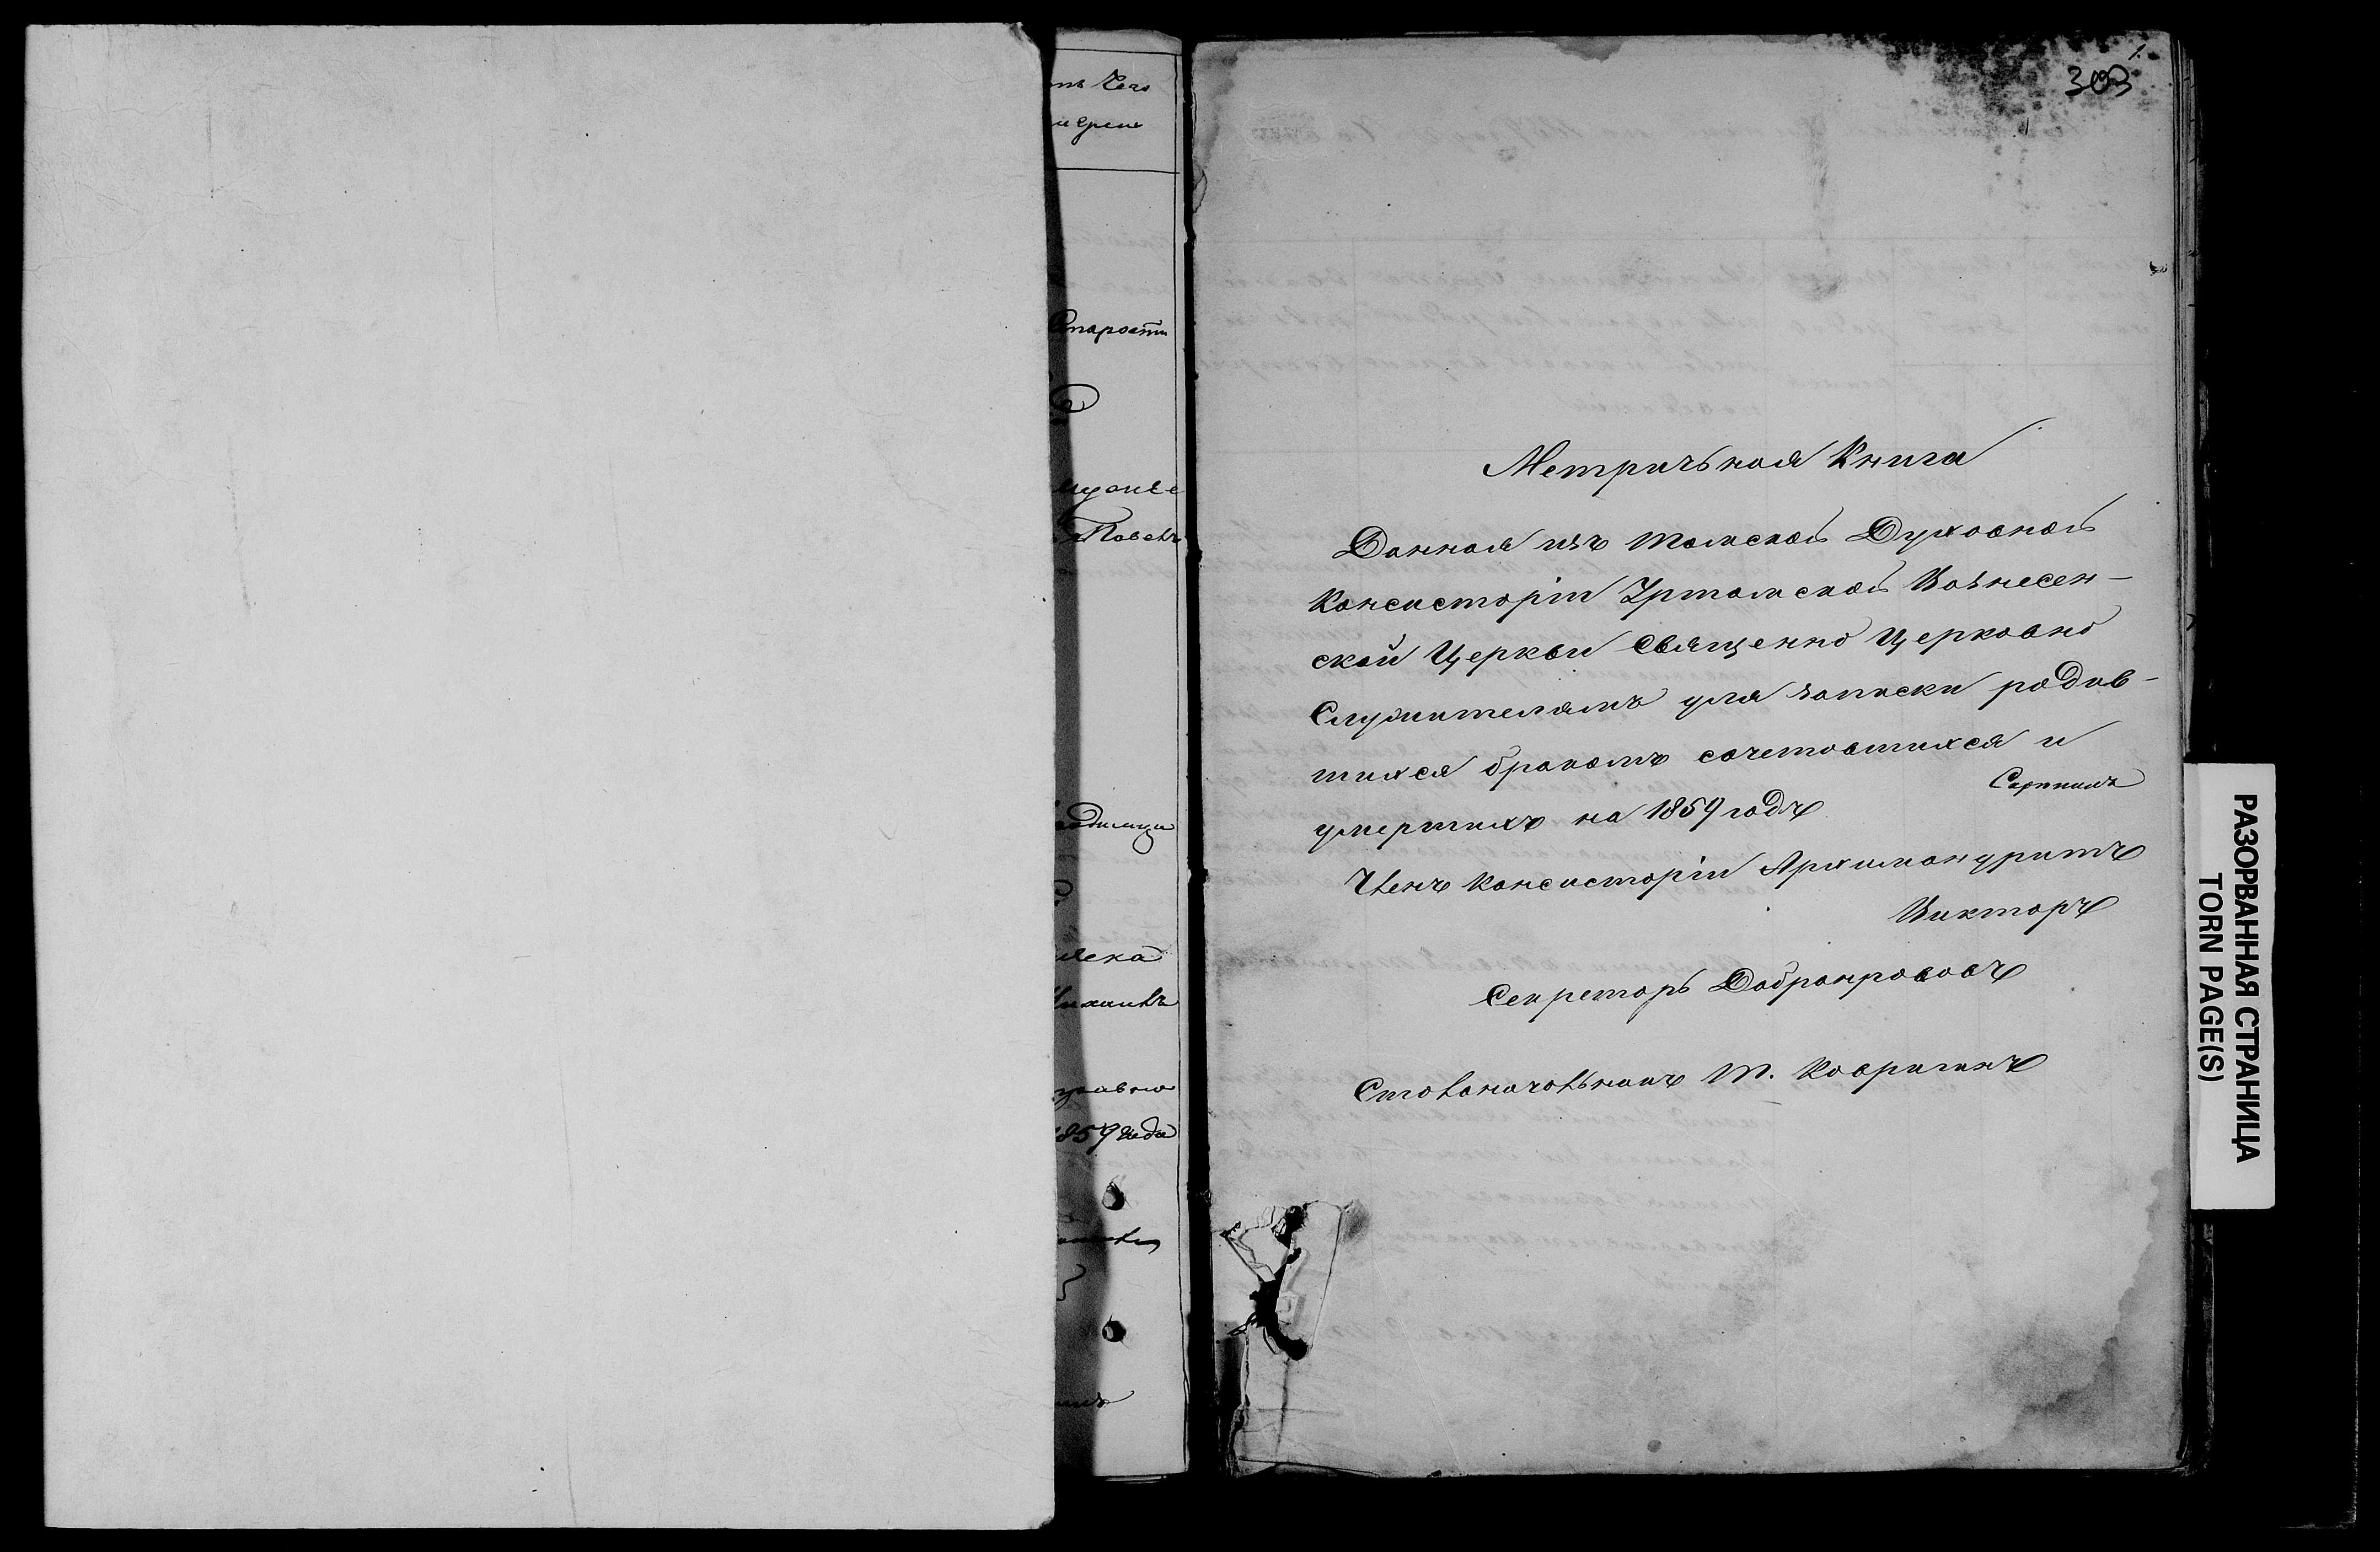 отъ чего
Старости
1859 года
1.
303
Метричьная Книга
Данная изъ Томской Духовной
Консисторіи Уртамской Вознесен-
ской Церкви Священно Церковно
Служителямъ для записки родив-
шихся бракомъ сочетовшихся и
умершихъ на 1859 годъ
Членъ Консисторіи Архимандритъ
Викторъ
Секретарь Добронрововъ
Столоначольникъ Т. Ковригинъ
РАЗОРВАННАЯ СТРАНИЦА
TORN PAGE(S)